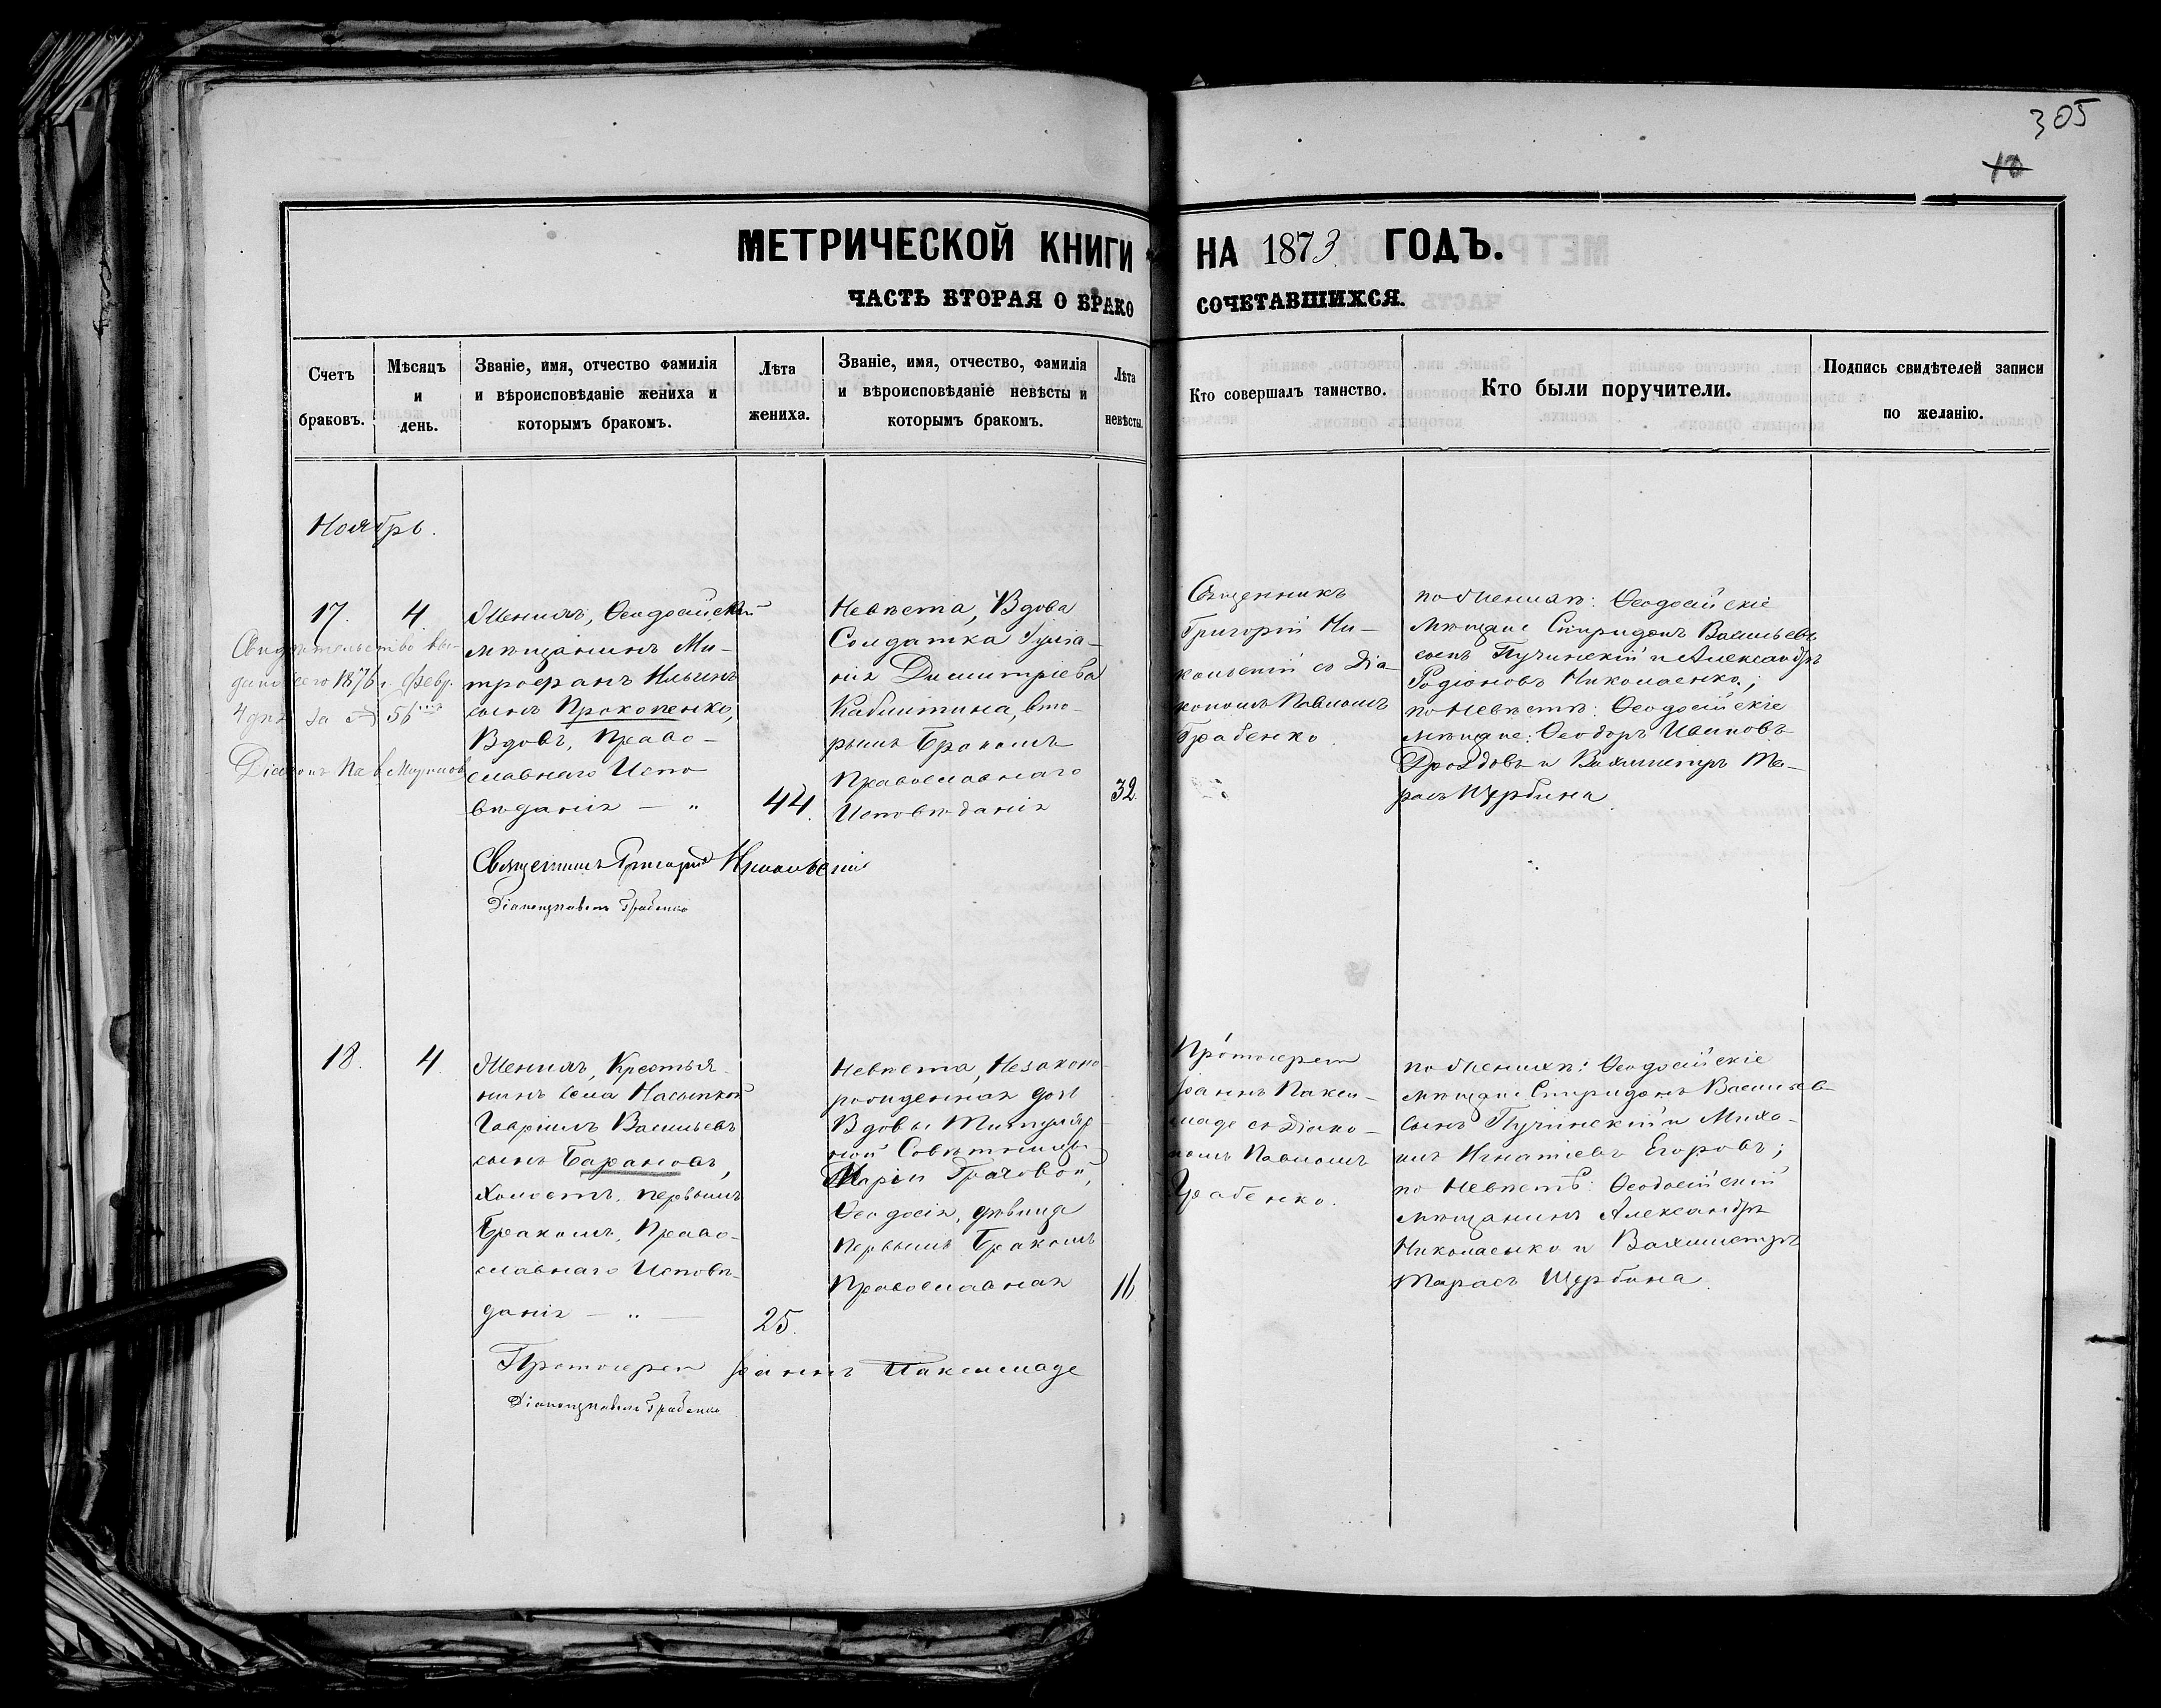 305
10
МЕТРИЧЕСКОЙ КНИГИ НА 1873 ГОДЪ.
ЧАСТЬ ВТОРАЯ О БРАКО СОЧЕТАВШИХСЯ.
Счетъ браковъ.
Мѣсяцъ и день.
Званіе, имя, отчество фамилія
и вѣроисповѣданіе жениха и
которымъ бракомъ.
Лѣта
жениха.
Званіе, имя, отчество, фамилія
и вѣроисповѣданіе невѣсты и
которымъ бракомъ.
Лѣта
невѣсты.
Кто совершалъ таинство.
Кто были поручители.
Подпись свидѣтелей записи
по желанію.
Ноябрь.
17.
4
Свидѣтельство вы-
1876 г. февр.
4 дня за № 56
Діаконъ
Женихъ, Ѳеодосійскій
мѣщанинъ Ми-
трофанъ Ильинъ
сынъ Прокопенко,
Вдовъ, Право-
славнаго Испо
вѣданія — "
44.
Невѣста, Вдова
Солдатка Іулiа-
нія Димитріева
вто-
рымъ Бракомъ
Православнаго
Исповѣданія
32.
Священникъ
Григорій Ни-
кольскій съ Діа-
кономъ Павломъ
Грабенко.
по Женихѣ: Ѳеодосійскіе
мѣщане Спиридонъ Васильевъ
сынъ Пучинскій и Александръ
Родіоновъ Николаенко;
по Невѣстѣ: Ѳеодосійскіе
мѣщане: Ѳеодоръ Ивановъ
Дроздовъ и Вахмистръ Та-
расъ Щербина.
Священникъ Григорій Никольскій
Діаконъ Павелъ Грабенко
18.
4.
Женихъ, Крестья-
нинъ села Насыпкой
Гавріилъ Васильевъ
сынъ Барановъ,
Холостъ, первымъ
Бракомъ, Право-
славнаго Исповѣ-
данія — " —
25.
Невѣста, Незаконо-
рожденная дочь
Вдовы Титуляр-
ной Совѣтницы
Маріи Грачовой,
Ѳеодосія, дѣвица
первымъ Бракомъ
Православная
16
Протоіерей
Іоаннъ Пакси-
маде съ Діако-
номъ Павломъ
Грабенко.
по Женихѣ: Ѳеодосійскіе
мѣщане Спиридонъ Васильев
сынъ Пучинскій и Миха-
илъ Игнатіевъ Егоровъ;
по Невѣстѣ: Ѳеодосійскій
мѣщанинъ Александръ
Николаенко и Вахмистръ
Тарасъ Щербина.
Протоіерей Іоаннъ Паксимаде
Діаконъ Павелъ Грабенко